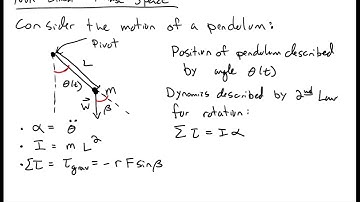 Consider the motion of a pendulum:
Pivot
L
θ(t)
m
W
β
Position of pendulum described
by angle θ(t)
Dynamics described by 2nd Law
for rotation:
Στ = Iα
• α = θ̈
• I = m L²
• Στ = τgrav = - r F sinβ